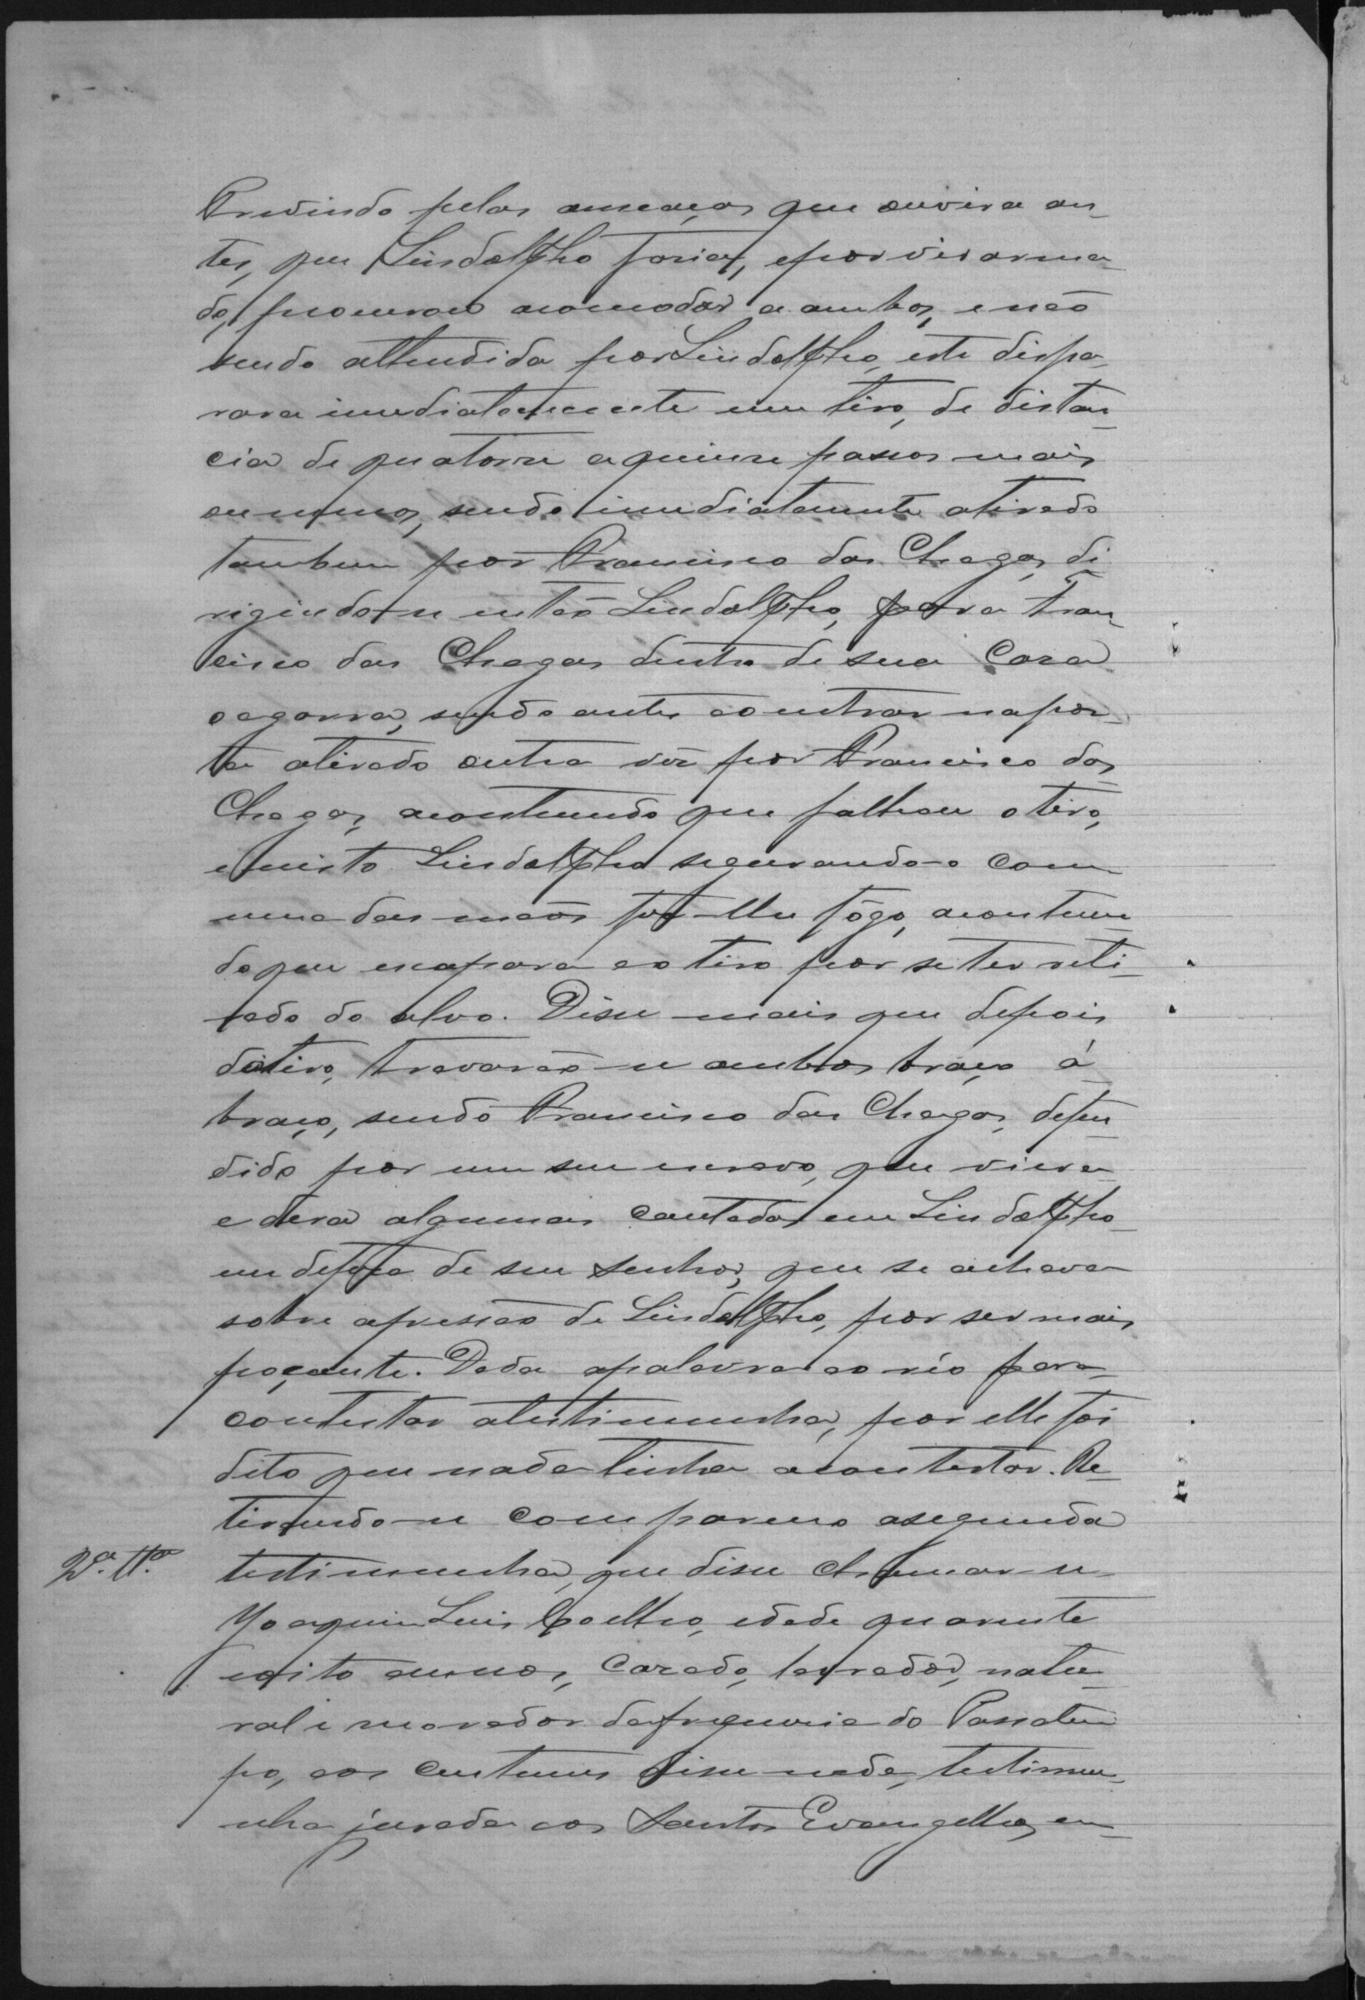 Previndo pelas ameaças que ouvira an-
tes, que Lindolpho fasia, e por vir arma-
do, procurou acomodar a ambos, e não
sendo attendida por Lindolpho, este dispa-
rara immediatamente um tiro, de distan-
cia de quatorse a quinse passos mais
ou menos, sendo immediatamente atirado
tambem por Francisco das Chagas, di
rigindo-se então Lindolpho, para Fran-
cisco das Chagas dentro de sua Casa
o agarra, sendo antes ao entrar na por-
ta atirado outra vez por Francisco das
Chagas, acontecendo que falhou o tiro,
e nisto Lindolpho segurando-o com
uma das mãos fez-lhe fôgo, acontecen
do que escapara ao tiro por se ter reti-
rado do alvo. Disse mais que depois
do tiro, travarão-se ambos braço á
braço, sendo Francisco das Chagas, defen-
dido por um seu escravo, que viera
e dera algumas cacetadas em Lindolpho
em defesa de seu senhor, que se achava
sobre a pressão de Lindolpho, por ser mais
poçante. Dada a palavra ao réo para
contestar a testimunha, por elle foi
dito que nada tinha a contestar. Re-
tirando-se compareceo a segunda
2ª. Tª. testimunha, que disse chamar-se
Joaquim Luis Coelho, idade quarenta
e oito annos, Casado, lavrador, natu-
ral e morador da freguesia do Passatem
po, aos costumes disse nada, testimu-
nha jurada aos Santos Evangelhos, em